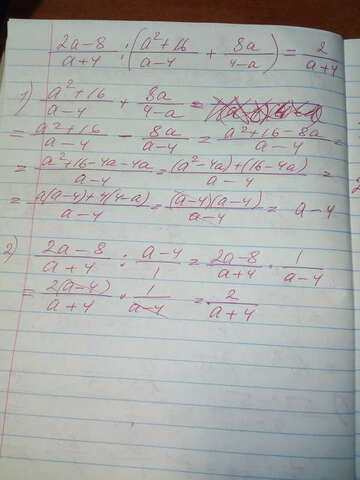 (2a-8)/(a+4) : ((a²+16)/(a-4) + 8a/(4-a)) = 2/(a+4)
1) (a²+16)/(a-4) + 8a/(4-a) =
= (a²+16)/(a-4) - 8a/(a-4) = (a²+16-8a)/(a-4) =
= (a²+16-4a-4a)/(a-4) = ((a²-4a)+(16-4a))/(a-4) =
= (a(a-4)+4(4-a))/(a-4) = ((a-4)(a-4))/(a-4) = a-4
2) (2a-8)/(a+4) : (a-4)/1 = (2a-8)/(a+4) · 1/(a-4)
= 2(a-4)/(a+4) · 1/(a-4) = 2/(a+4)